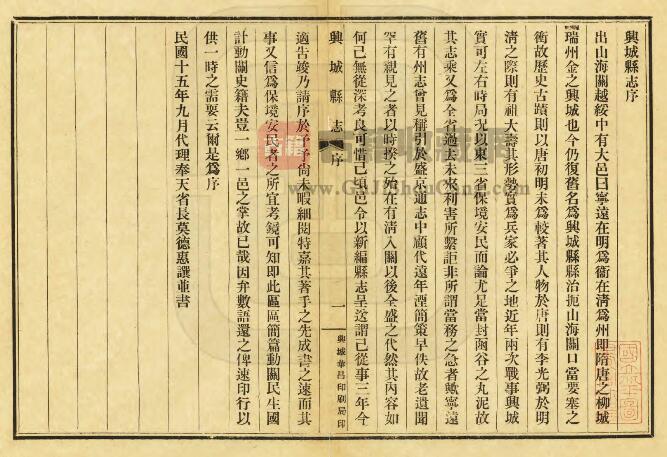 興城縣志序
出山海關越綏中有大邑曰寧遠在明爲衞在淸爲州卽隋唐之柳城
瑞州金之興城也今仍復舊名爲興城縣縣治扼山海關口當要塞之
衝故歷史古蹟則以唐初明末爲較著其人物於唐則有李光弼於明
淸之際則有祖大壽其形勢實爲兵家必爭之地近年兩次戰事興城
實可左右時局况以東三省保境安民而論尤是當封函谷之丸泥故
其志乘又爲全省過去未來利害所繫詎非所謂當務之急者歟寧遠
舊有州志曾見稱引於盛京通志中顧代遠年湮簡策早佚故老遺聞
罕有親見之者以時揆之殆在有淸入關以後全盛之代然其內容如
何已無從深考良可惜已頃邑令以新編縣志呈送謂已從事三年今
興城縣志 序 一 興城華昌印刷局印
適告竣乃請序於予予尚未暇細閱特嘉其著手之先成書之速而其
事又信爲保境安民者之所宜考鏡可知卽此區區簡篇動關民生國
計動關史籍夫豈一鄉一邑之掌故已哉因弁數語還之俾速印行以
供一時之需要云爾是爲序
民國十五年九月代理奉天省長莫德惠譔並書